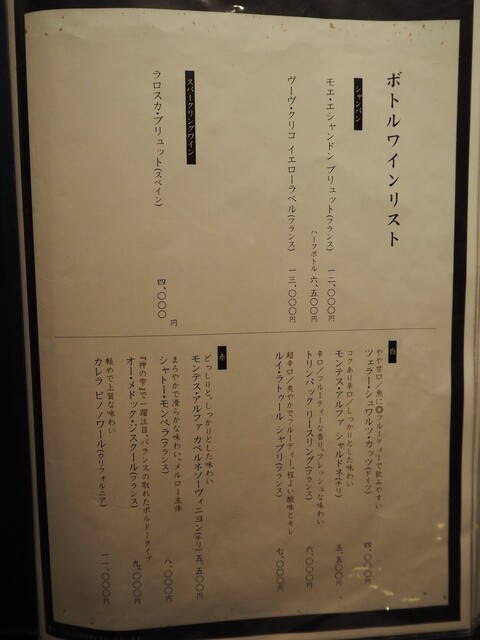 ボトルワインリスト
シャンパン
モエ・エ・シャンドン ブリュット(フランス) 一二、〇〇〇円
ハーフボトル 六、五〇〇円
ヴーヴ・クリコ イエローラベル(フランス) 一三、〇〇〇円
スパークリングワイン
ラロスカ・ブリュット(スペイン) 四、〇〇〇円
白
やや甘口/魚に◎フルーティーで飲みやすい
ツェラー・シュワルツ・カッツ(ドイツ) 四、〇〇〇円
コクあり辛口/しっかりとした味わい
モンテス・アルファ シャルドネ(チリ) 五、五〇〇円
辛口/フルーティーな香り、フレッシュな味わい
トリンバック リースリング(フランス) 六、〇〇〇円
超辛口/爽やかでフルーティー、程よい酸味とキレ
ルイ・ラトゥール シャブリ(フランス) 七、〇〇〇円
赤
どっしりと、しっかりとした味わい
モンテス・アルファ カベルネソーヴィニヨン(チリ) 五、五〇〇円
まろやかで滑らかな味わい。メルロー主体
シャトー・モンペラ(フランス) 八、〇〇〇円
『神の雫』で一躍注目。バランスの取れたボルドータイプ
オー・メドック・ジスクール(フランス) 九、〇〇〇円
軽めで上質な味わい
カレラ ピノ・ノワール(カリフォルニア) 一一、〇〇〇円